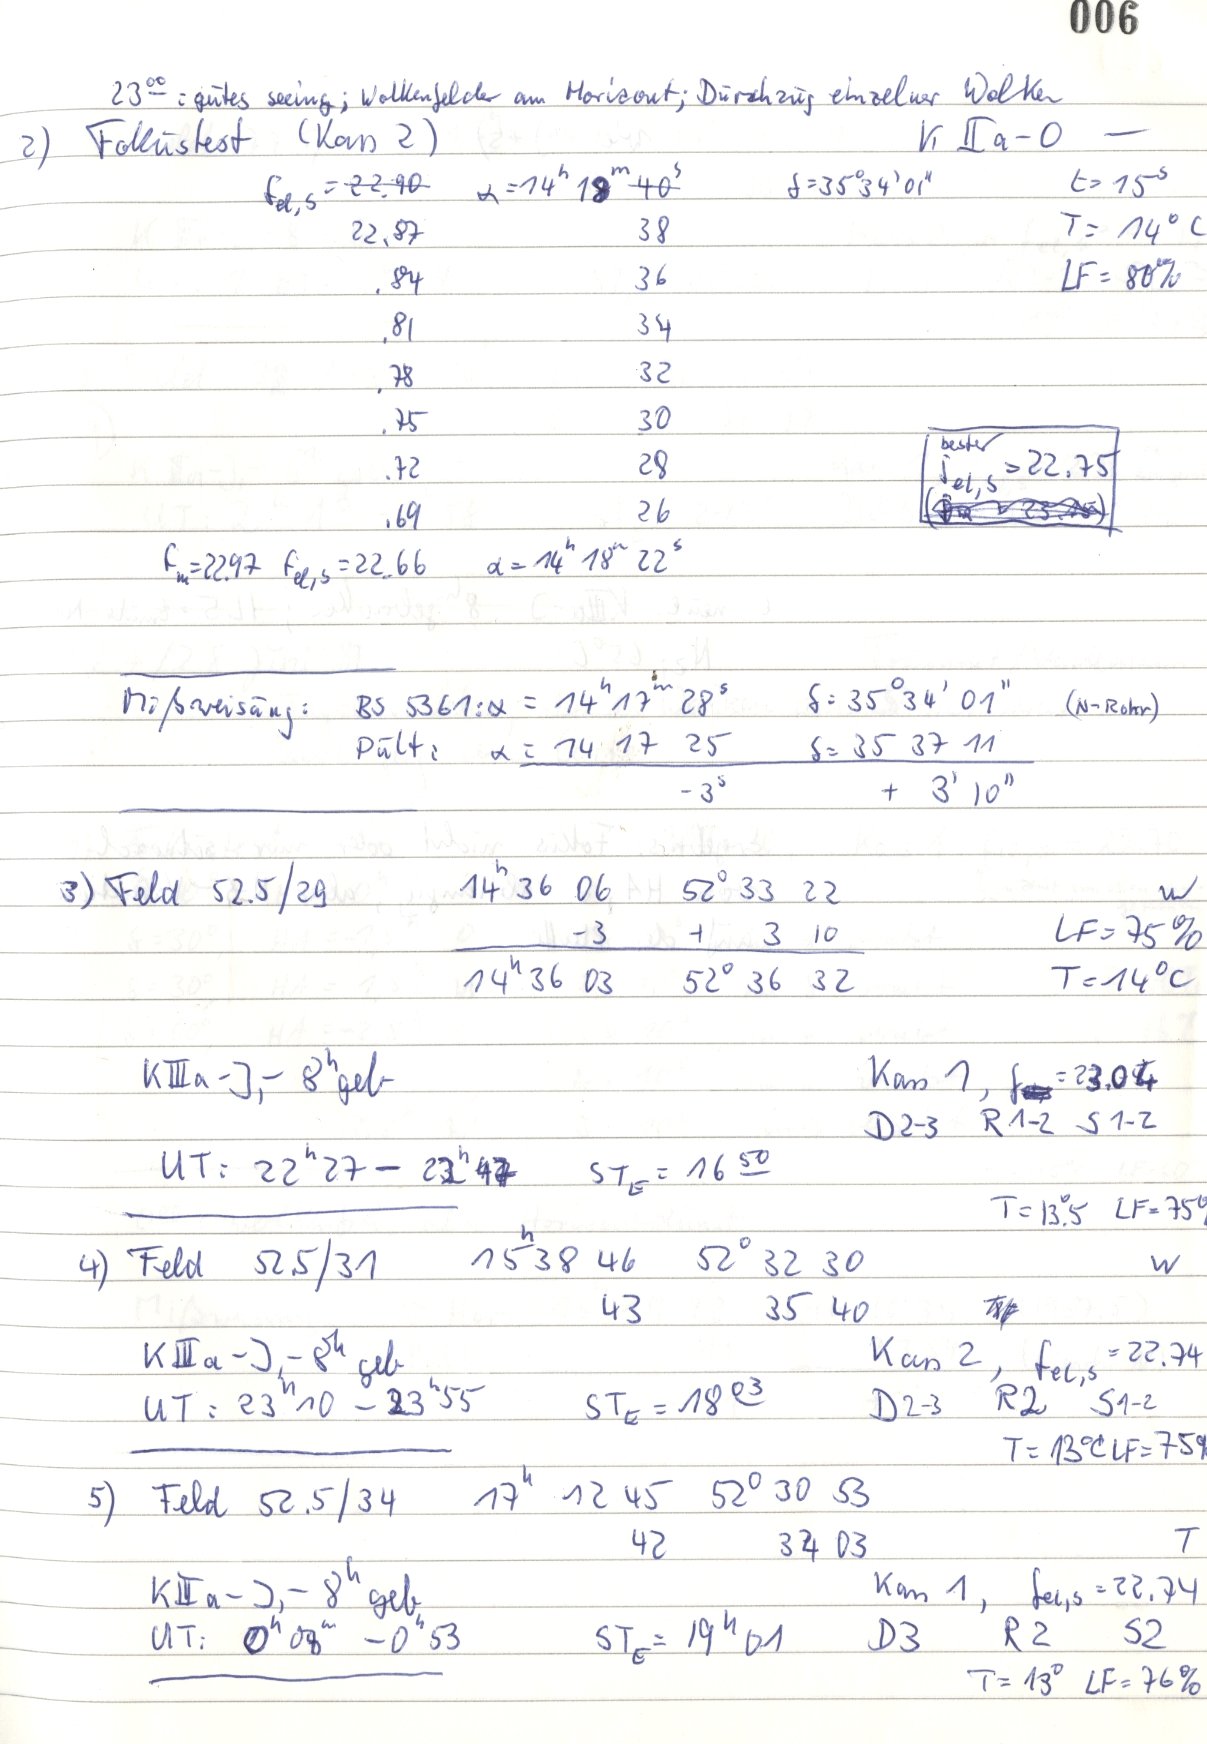 006
23⁰⁰ : gutes seeing; Wolkenfelder am Horizont; Durchzug einzelner Wolken
2) Fokustest (Kass 2) K IIa-O —
f_el,s = 22.90 α = 14ʰ 18ᵐ 40ˢ δ = 35° 34' 01" t = 15ˢ
22.87 38 T = 14° C
.84 36 LF = 80%
.81 34
.78 32
.75 30
.72 28
.69 26
bester
f_el,s = 22.75
f_m = 22.97 f_el,s = 22.66 α = 14ʰ 18ᵐ 22ˢ
Mißweisung: BS 5361: α = 14ʰ 17ᵐ 28ˢ δ = 35° 34' 01" (N-Rohr)
Pult: α = 14 17 25 δ = 35 37 11
-3ˢ + 3' 10"
3) Feld 52.5/29 14ʰ 36 06 52° 33 22 W
-3 + 3 10 LF = 75%
14ʰ 36 03 52° 36 32 T = 14°C
K IIIa-J, - 8ʰ geb Kass 1, = 23.04
D2-3 R1-2 S1-2
UT: 22ʰ27 - ST_E = 16⁵⁰
T = 13°.5 LF = 75%
4) Feld 52.5/31 15ʰ 38 46 52° 32 30 W
43 35 40
K IIIa-J, - 8ʰ geb Kass 2, f_el,s = 22.74
UT: 23ʰ10 - 23ʰ55 ST_E = 18⁰³ D2-3 R2 S1-2
T = 13°C LF = 75%
5) Feld 52.5/34 17ʰ 12 45 52° 30 53
42 34 03 T
K IIIa-J, - 8ʰ geb Kass 1, f_el,s = 22.74
UT: 0ʰ 08ᵐ - 0ʰ 53 ST_E = 19ʰ 01 D3 R2 S2
T = 13° LF = 76%